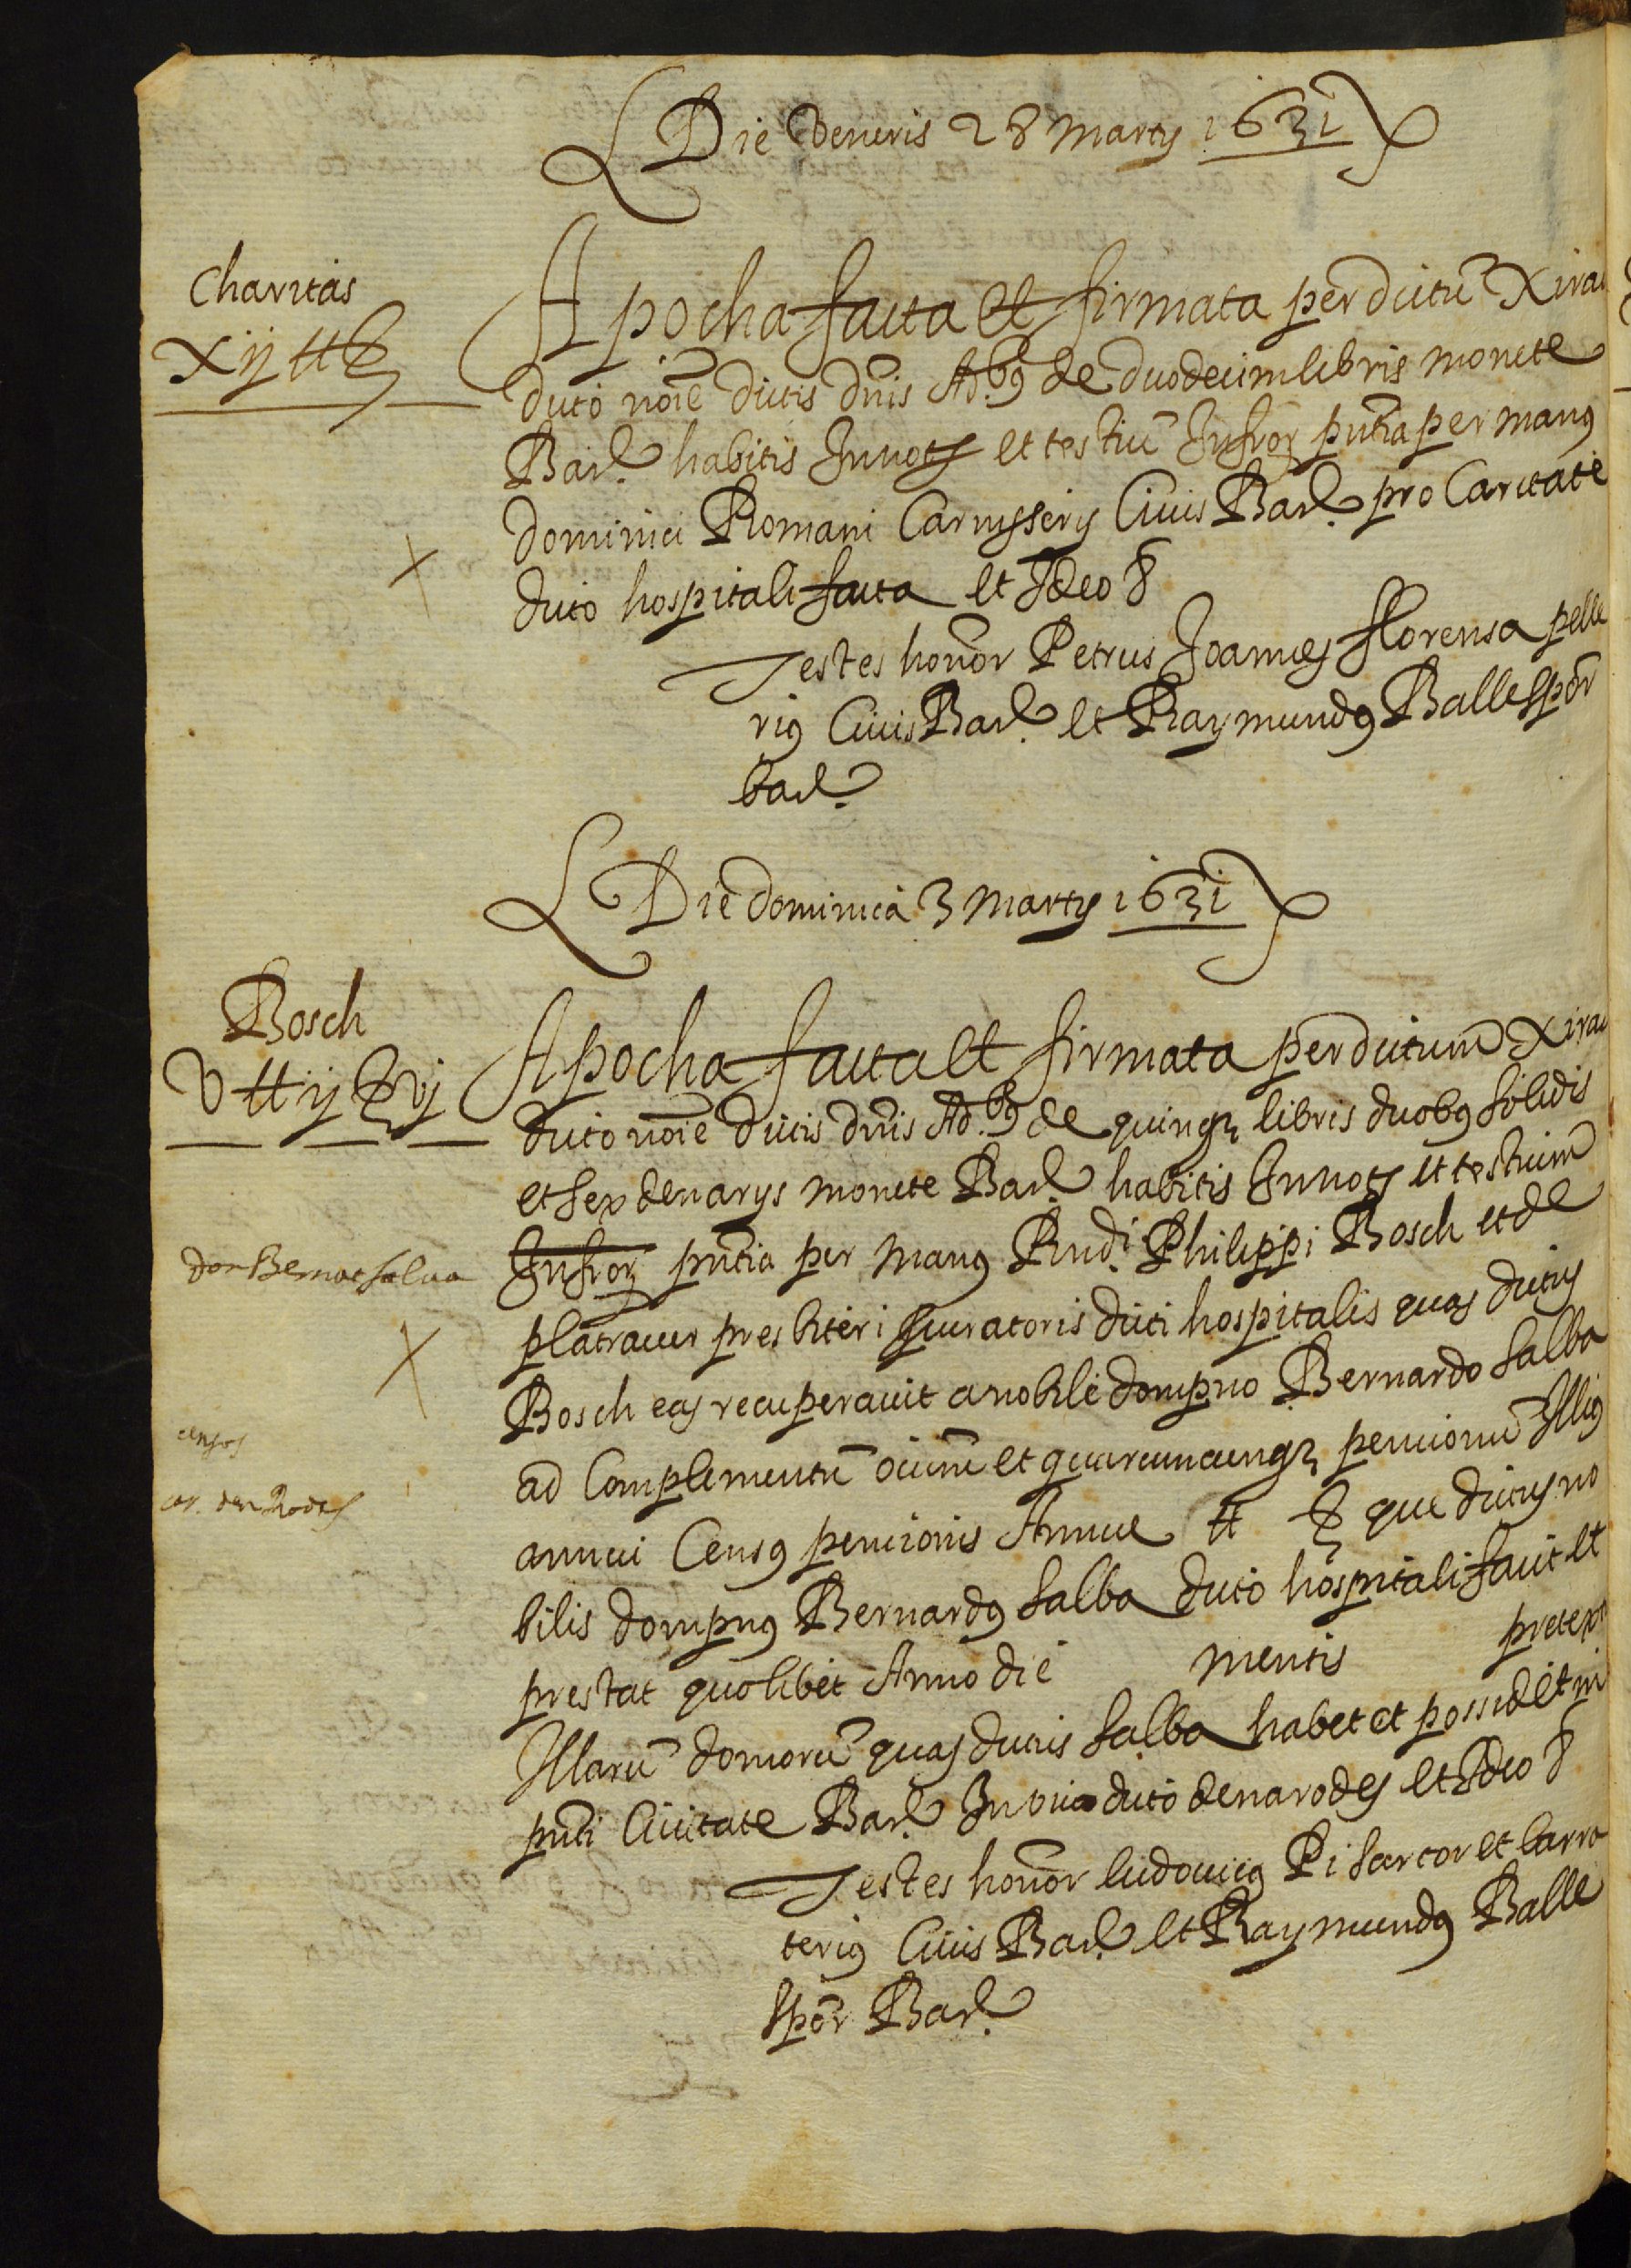 Die Veneris 28 Martÿ 1631
Charitas
Xij ℔
Apocha facta et firmata per dictū Xirau
dicto noīe dictis dnīs Ad.bꝰ de duodecim libris monete
Bar.^l habitis In notÿ et testiū Infror pntīa per manꝰ
dominici Romani Carnysserÿ Ciuis Bar.^l pro Caritate
dicto hospitali facta et Ideo &
Testes honōr Petrus Joannes florensa pelle
riꝰ Ciuis Bar.^l et Raymundꝰ Balle Spōr
bar.^l
Die dominica 3 Martÿ 1631
Bosch
V ℔ ij ß vj
Apocha facta et firmata per dictum Xirau
dicto noīe dictis dnīs Ad.bꝰ de quinqꝫ libris duobꝰ solidis
et sex denarÿs monete Bar.^l habitis In notÿ et testium
Infror pntīa per manꝰ Rndi. Philippi Bosch et de
don Bernat salua
platrauer presbiteri procuratoris dicti hospitalis quas dictus
Bosch eas recuperauit a nobile dompno Bernardo Salba
ad Complementū oīum et quarumcunqꝫ pencionū Illiꝰ
censos
annui Censꝰ pencionis Annue ℔ ß que dictus no
car. den Rodes
bilis dompnꝰ Bernardꝰ Salba dicto hospitali facit et
prestat quolibet Anno die mensis pretextu
Illarū domorū quas dictis Salba habet et possidet in
pntī Ciuitate Bar.^l In vico dicto den arodes et Ideo &
Testes honōr ludouicꝰ Pi sartor et barra
teriꝰ Ciuis Bar.^l et Raymundꝰ Balle
Spōr Bar.^l